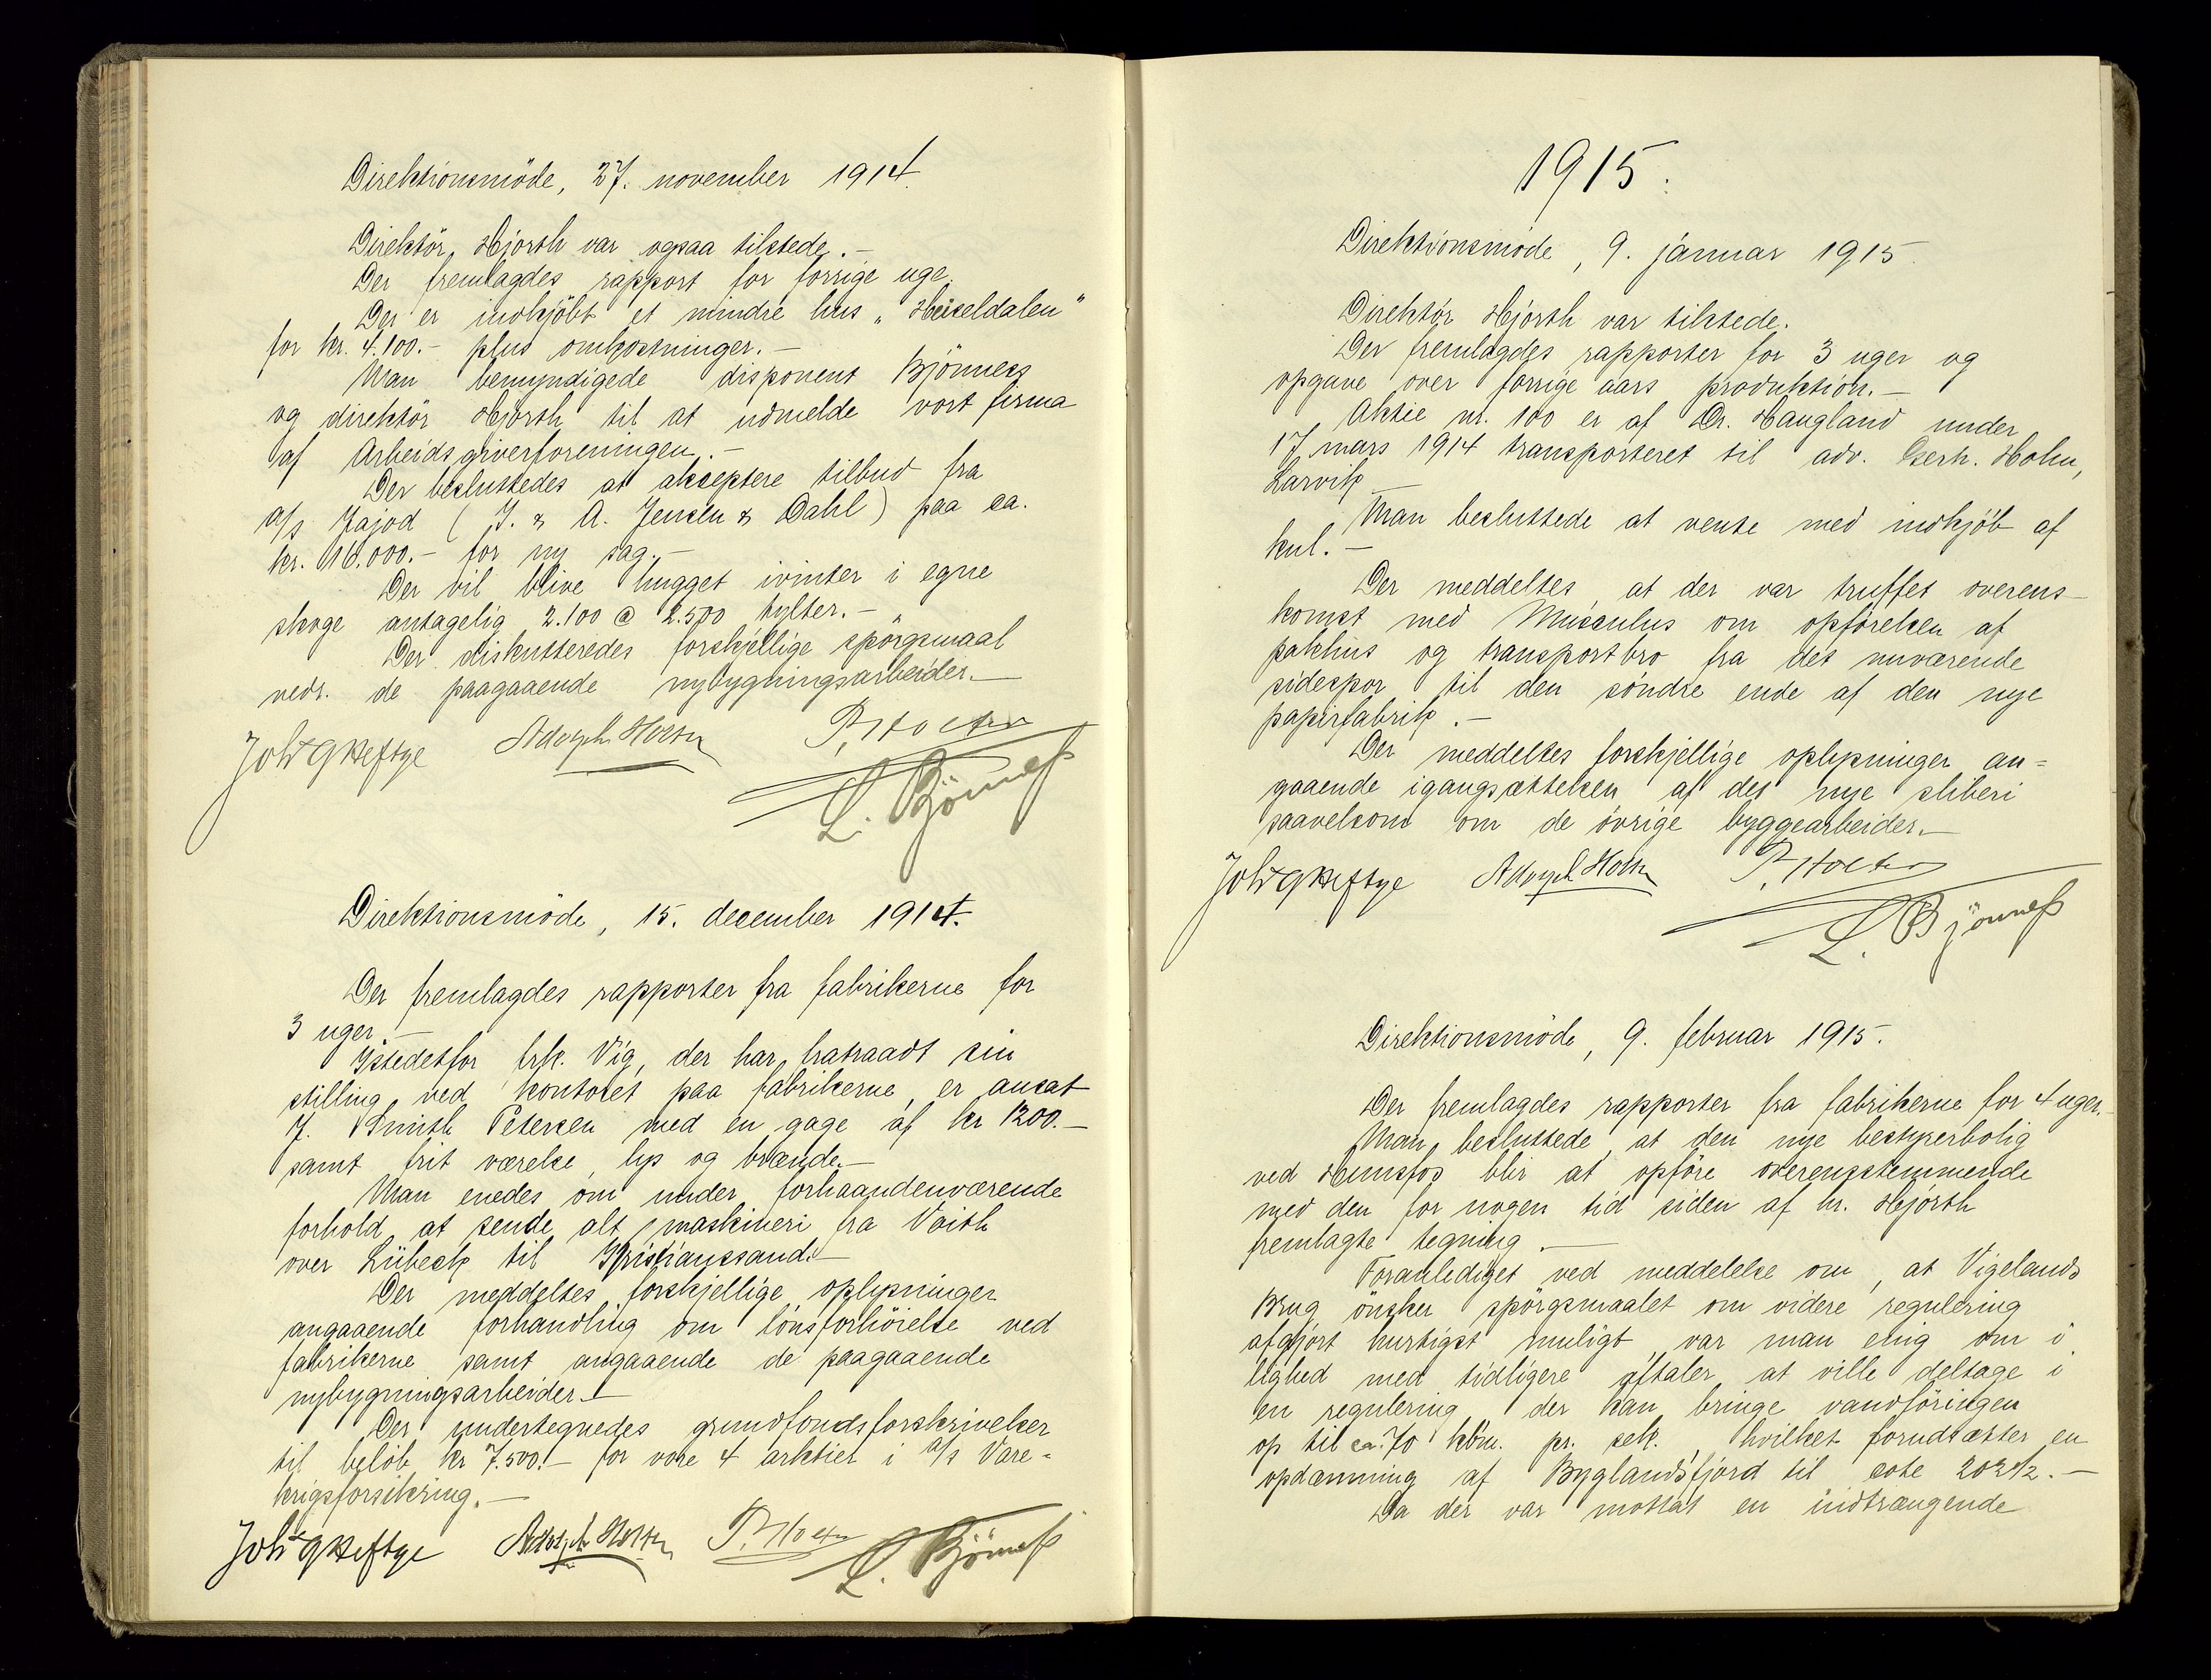 Direktionsmöde, 27. november 1914.
Direktör Hjorth var ogsaa tilstede.—
Der fremlagdes rapport for forrige uge.
Der er indkjöbt et mindre hus „Heiseldalen"
for kr. 4.100.- plus omkostninger.—
Man bemyndigede disponent Bjönness
og direktör Hjorth til at udmelde vort firma
af Arbeidsgiverforeningen.—
Der besluttedes at akseptere tilbud fra
A/s Jajod (J. & A. Jensen & Dahl) paa ca.
kr. 16.000.- for ny sag.—
Der vil blive hugget ivinter i egne
skoge antagelig 2.100 @ 2.500 tylter.—
Der diskutteredes forskjellige spörgsmaal
vedr. de paagaaende nybygningsarbeider.—
Joh G Heftye Adolph Holter P. Holter
L. Bjönness
Direktionsmöde, 15. december 1914.
Der fremlagdes rapporter fra fabrikerne for
3 uger.—
Istedetfor frk. Vig, der har fratraadt sin
stilling ved kontoret paa fabrikerne, er ansat
J. Smith Petersen med en gage af kr 1200.—
samt frit værelse, lys og brænde.—
Man enedes om under forhaandenværende
forhold at sende alt maskineri fra Voith
over Lübeck til Kristianssand.—
Der meddeltes forskjellige oplysninger
angaaende forhandling om lönsforhöielse ved
fabrikerne samt angaaende de paagaaende
nybygningsarbeider.—
Der undertegnedes grundfondsforskrivelser
til belöb kr 7.500.- for vore 4 arktier i A/s Vare-
krigsforsikring.—
Joh G Heftye Adolph Holter P. Holter L. Bjönness
1915.
Direktionsmöde, 9. januar 1915.
Direktör Hjorth var tilstede.
Der fremlagdes rapporter for 3 uger og
opgave over forrige aars produktion.—
Aktie nr. 100 er af Dr. Haugland under
17 mars 1914 transporteret til adv. Gerh. Holm,
Larvik.—
Man besluttede at vente med indkjöb af
kul.—
Der meddeltes, at der var truffet overens-
komst med Musculus om opförelsen af
pakhus og transportbro fra det nuværende
sidespor til den söndre ende af den nye
papirfabrik.—
Der meddeltes forskjellige oplysninger an=
gaaende igangsættelsen af det nye sliberi
saavelsom om de övrige byggearbeider.—
Joh G Heftye Adolph Holter P. Holter
L. Bjönness
Direktionsmöde, 9. februar 1915.
Der fremlagdes rapporter fra fabrikerne for 4 uger.
Man besluttede, at den nye bestyrerbolig
ved Hunsfos blir at opföre overensstemmende
med den for nogen tid siden af hr. Hjorth
fremlagte tegning.—
Foranlediget ved meddelelse om, at Vigelands
Brug önsker spörgsmaalet om videre regulering
afgjort hurtigst muligt, var man enig om i
lighed med tidligere aftaler at ville deltage i
en regulering, der kan bringe vandföringen
op til ca. 70 kbm. pr. sek., hvilket forudsætter en
opdæmning af Byglandsfjord til cote 202½.—
Da der var mottat en indtrængende